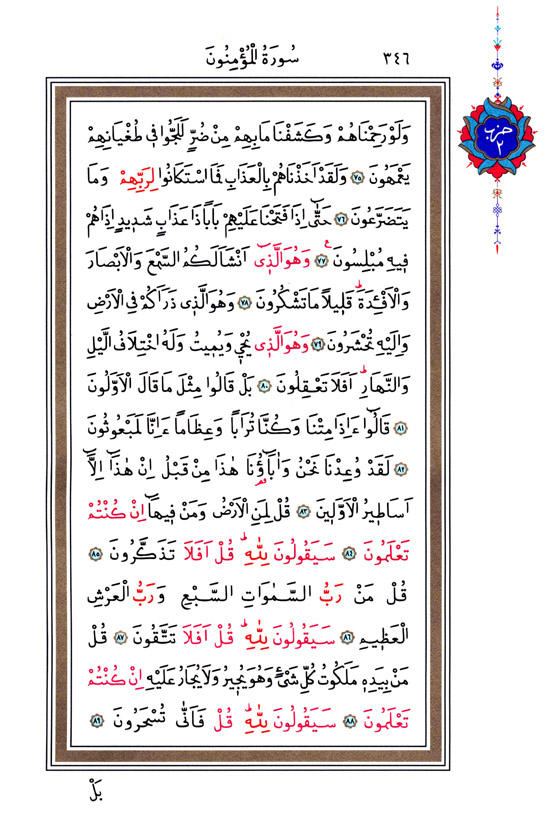 سُورَةُ الْمُؤْمِنُونَ ٣٤٦
حزب ٢
وَلَوْ رَحِمْنَاهُمْ وَكَشَفْنَا مَا بِهِمْ مِنْ ضُرٍّ لَلَجُّوا فِي طُغْيَانِهِمْ
يَعْمَهُونَ ﴿٧٥﴾ وَلَقَدْ اَخَذْنَاهُمْ بِالْعَذَابِ فَمَا اسْتَكَانُوا لِرَبِّهِمْ وَمَا
يَتَضَرَّعُونَ ﴿٧٦﴾ حَتّٰٓى اِذَا فَتَحْنَا عَلَيْهِمْ بَاباً ذَا عَذَابٍ شَدِيدٍ اِذَا هُمْ
فِيهِ مُبْلِسُونَ ﴿٧٧﴾ وَهُوَ الَّذِٓي اَنْشَاَ لَكُمُ السَّمْعَ وَالْاَبْصَارَ
وَالْاَفْـِٔدَةَۜ قَلِيلاً مَا تَشْكُرُونَ ﴿٧٨﴾ وَهُوَ الَّذِي ذَرَاَكُمْ فِي الْاَرْضِ
وَاِلَيْهِ تُحْشَرُونَ ﴿٧٩﴾ وَهُوَ الَّذِي يُحْيِ وَيُمِيتُ وَلَهُ اخْتِلَافُ الَّيْلِ
وَالنَّهَارِۜ اَفَلَا تَعْقِلُونَ ﴿٨٠﴾ بَلْ قَالُوا مِثْلَ مَا قَالَ الْاَوَّلُونَ
﴿٨١﴾ قَالُٓوا ءَاِذَا مِتْنَا وَكُنَّا تُرَاباً وَعِظَاماً ءَاِنَّا لَمَبْعُوثُونَ
﴿٨٢﴾ لَقَدْ وُعِدْنَا نَحْنُ وَاٰبَٓاؤُ۬نَا هٰذَا مِنْ قَبْلُ اِنْ هٰذَٓا اِلَّٓا
اَسَاطِيرُ الْاَوَّلِينَ ﴿٨٣﴾ قُلْ لِمَنِ الْاَرْضُ وَمَنْ فِيهَٓا اِنْ كُنْتُمْ
تَعْلَمُونَ ﴿٨٤﴾ سَيَقُولُونَ لِلّٰهِۜ قُلْ اَفَلَا تَذَكَّرُونَ ﴿٨٥﴾
قُلْ مَنْ رَبُّ السَّمٰوَاتِ السَّبْعِ وَرَبُّ الْعَرْشِ
الْعَظِيمِ ﴿٨٦﴾ سَيَقُولُونَ لِلّٰهِۜ قُلْ اَفَلَا تَتَّقُونَ ﴿٨٧﴾ قُلْ
مَنْ بِيَدِهِ مَلَكُوتُ كُلِّ شَيْءٍ وَهُوَ يُجِيرُ وَلَا يُجَارُ عَلَيْهِ اِنْ كُنْتُمْ
تَعْلَمُونَ ﴿٨٨﴾ سَيَقُولُونَ لِلّٰهِۜ قُلْ فَاَنّٰى تُسْحَرُونَ ﴿٨٩﴾
بَلْ